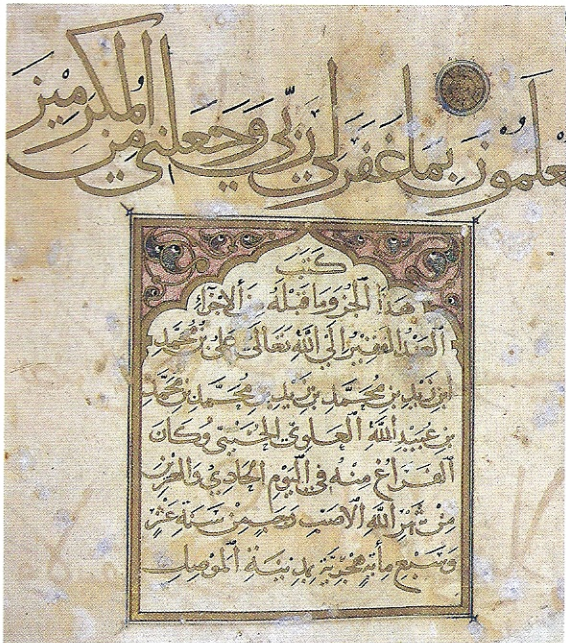 يعلمون بما غفر لي ربي وجعلني من المكرمين
كتب
هذا الجزء وما قبله من الأجزاء
العبد الفقير إلى الله تعالى علي بن محمد
ابن زيد بن محمد بن زيد بن محمد بن محمد
بن عبيد الله العلوي الحسيني وكان
الفراغ منه في اليوم الحادي والعشرين
من شهر الله الأصب رجب من سنة عشر
وسبع مائة هجرية بمدينة الموصل